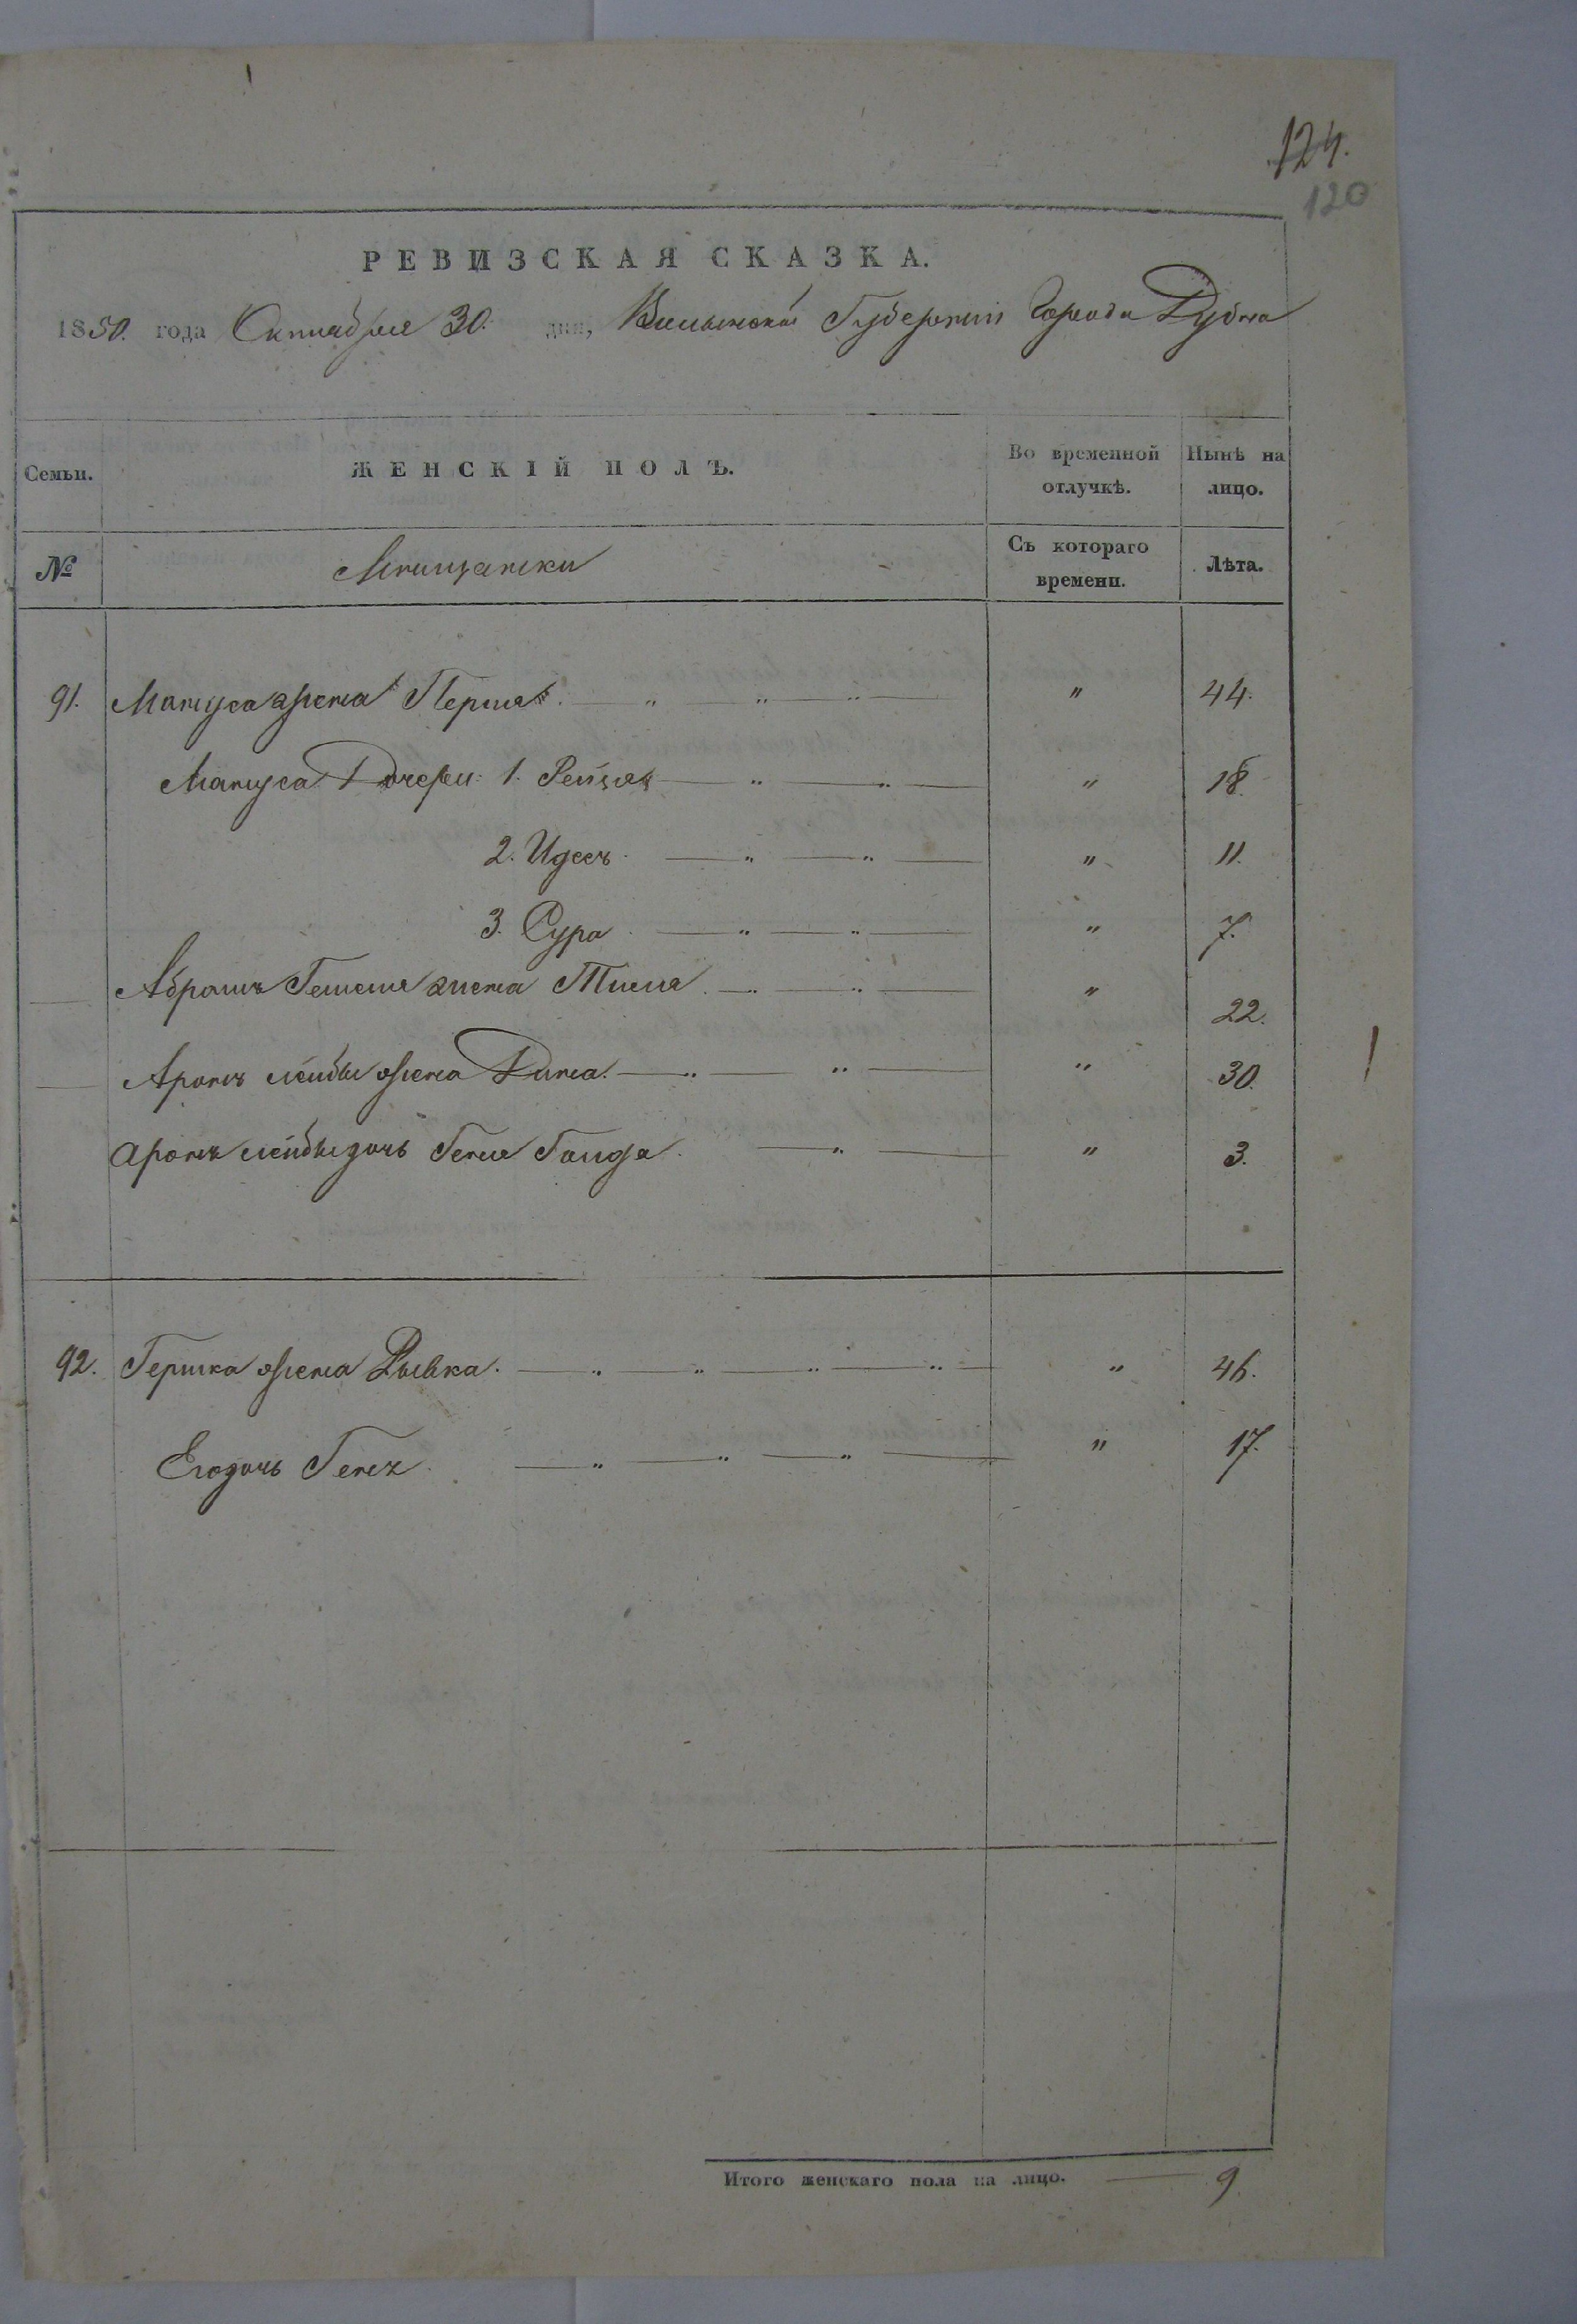 124.
120
РЕВИЗСКАЯ СКАЗКА.
1850. года Октября 30. дня, Волынской Губернии Города Дубна
Семьи. ЖЕНСКІЙ ПОЛЪ. Во временной отлучкѣ. Нынѣ на лицо.
№ Мещанки Съ котораго времени. Лѣта.
91. Мануса жена Перля. — „ — „ — „ — „ 44.
Мануса Дочери: 1. Рейзя — „ — „ — „ 18.
2. Идесъ. — „ — „ — „ 11.
3. Сура. — „ — „ — „ 7.
Абрамъ жена — „ — „ — „ 22.
Аронъ лейбы жена Дина. — „ — „ — „ 30.
Аронъ лейбы дочь Геня — „ — „ 3.
92. Гершка жена Рывка. — „ — „ — „ — „ — „ 46.
Его дочь — „ — „ — „ — „ 17.
Итого женскаго пола на лицо. — 9